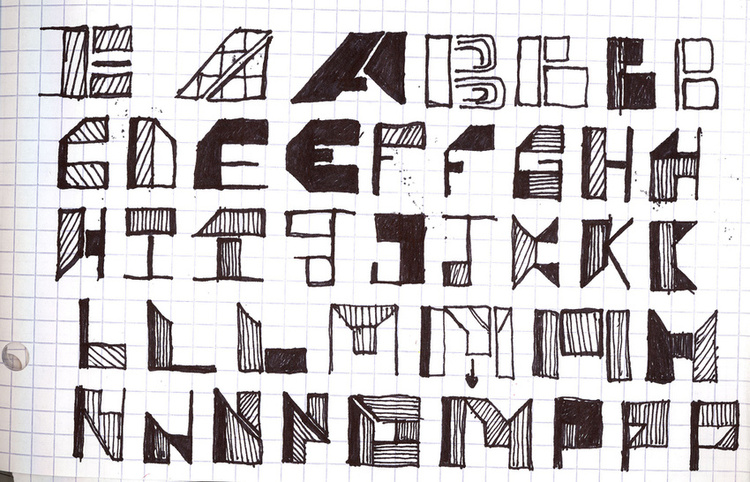 E A A B B B B
C D E E F F G H H
H I I J J J K K K
L L L M M M M
N N N N O M P P P